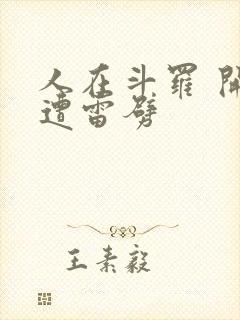 人在斗罗 開
遭雷劈
王素毅